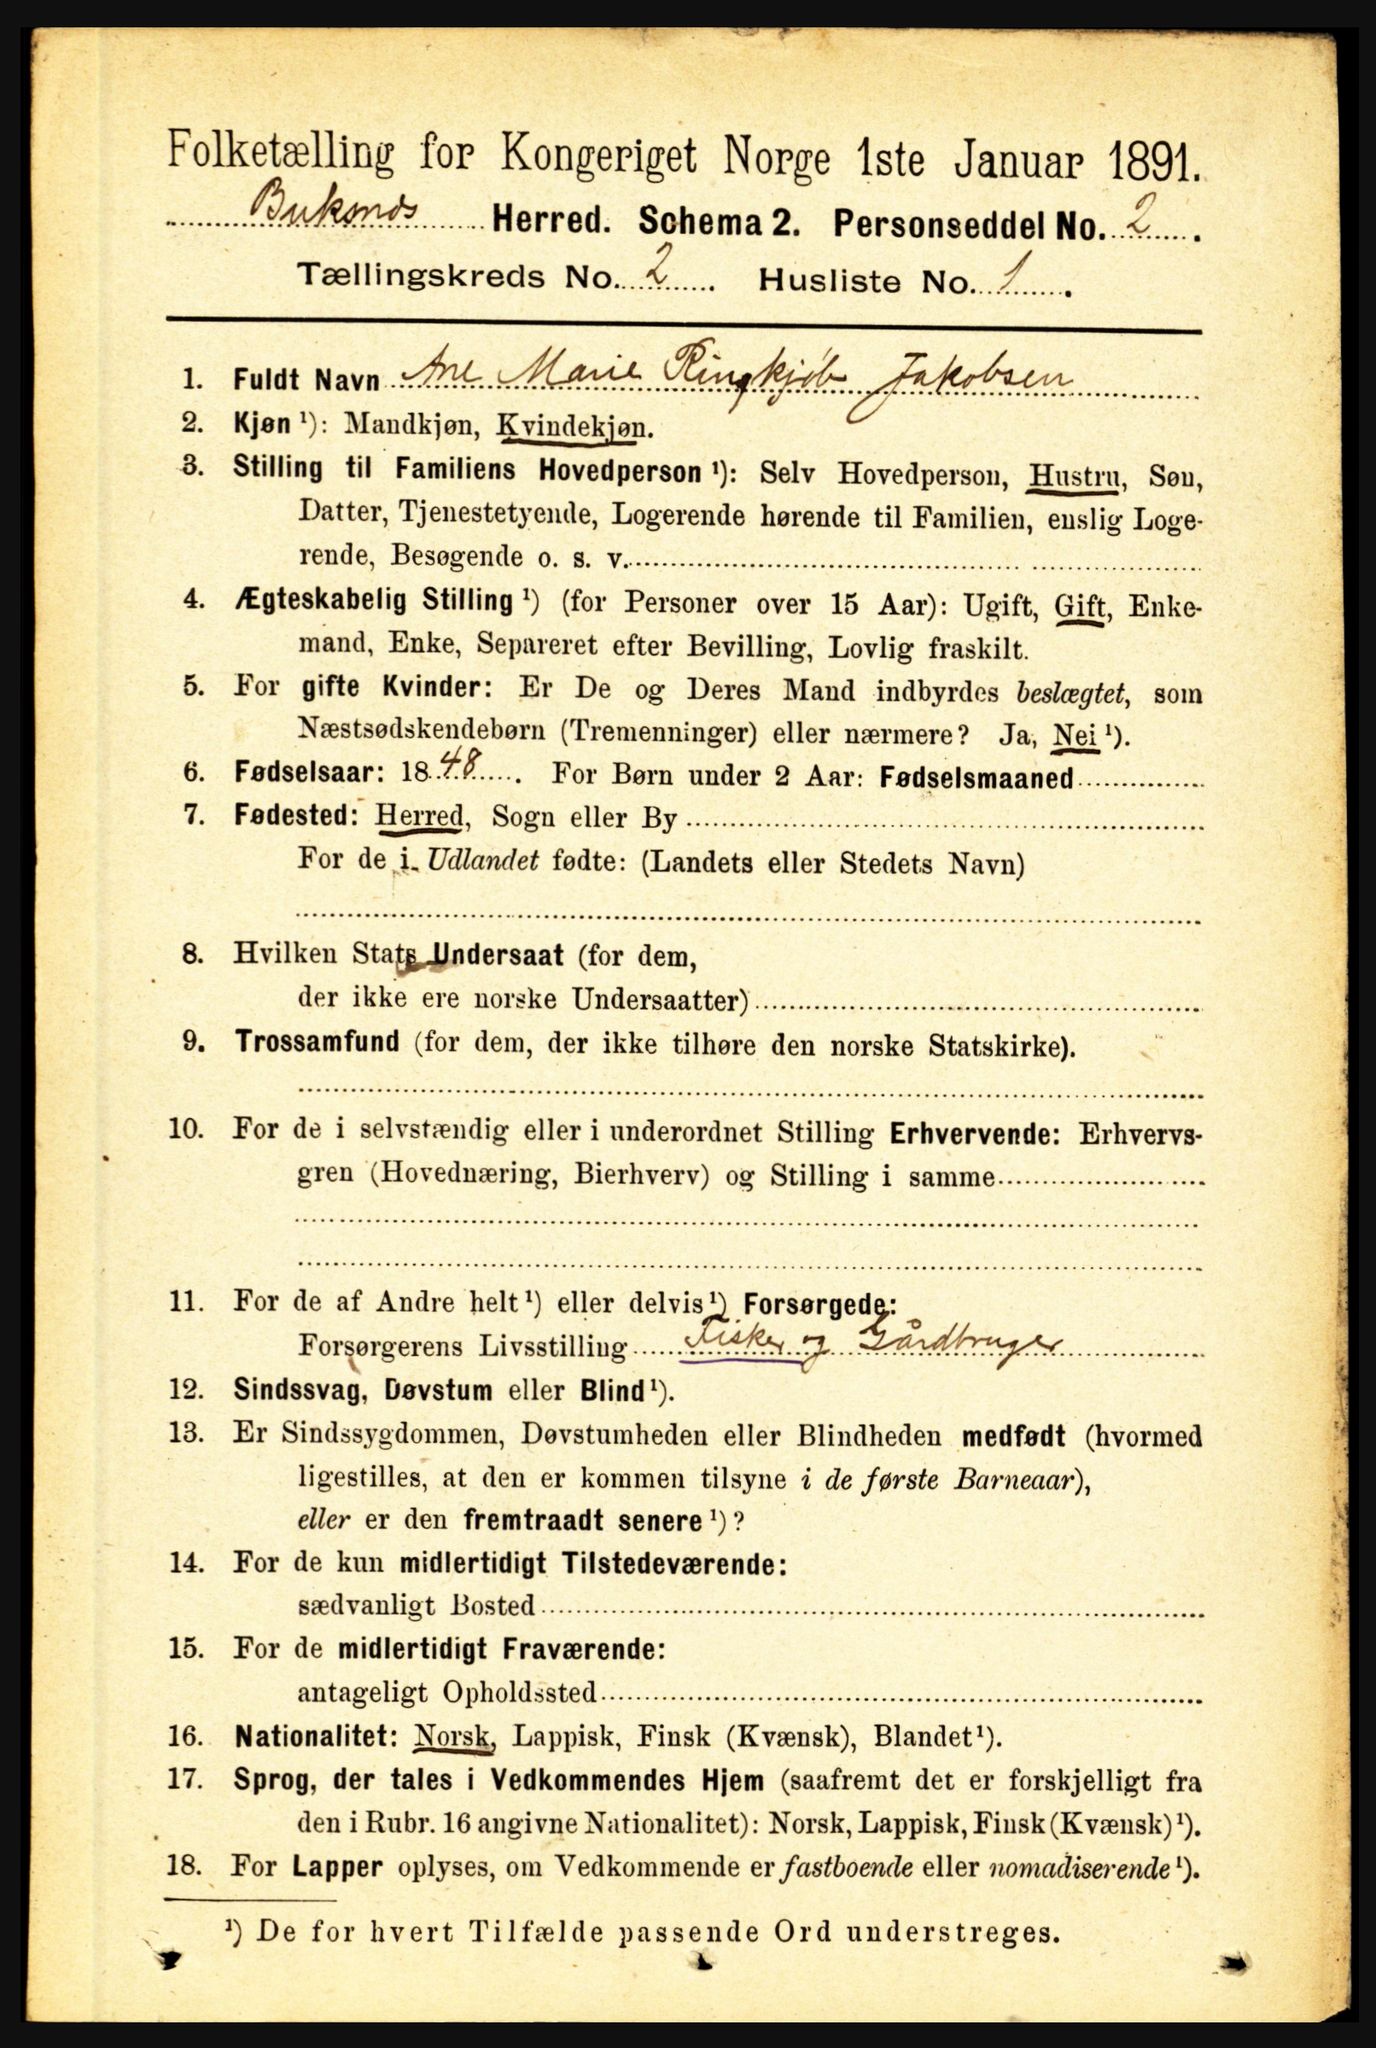 Folketælling for Kongeriget Norge 1ste Januar 1891.
Buksnes Herred. Schema 2. Personseddel No. 2.
Tællingskreds No. 2. Husliste No. 1.
1. Fuldt Navn Ane Marie Ringkjøb Jakobsen
2. Kjøn ¹): Mandkjøn, Kvindekjøn.
3. Stilling til Familiens Hovedperson ¹): Selv Hovedperson, Hustru, Søn,
Datter, Tjenestetyende, Logerende hørende til Familien, enslig Loge-
rende, Besøgende o. s. v.
4. Ægteskabelig Stilling ¹) (for Personer over 15 Aar): Ugift, Gift, Enke-
mand, Enke, Separeret efter Bevilling, Lovlig fraskilt.
5. For gifte Kvinder: Er De og Deres Mand indbyrdes beslægtet, som
Næstsødskendebørn (Tremenninger) eller nærmere? Ja, Nei ¹).
6. Fødselsaar: 1848. For Børn under 2 Aar: Fødselsmaaned
7. Fødested: Herred, Sogn eller By
For de i Udlandet fødte: (Landets eller Stedets Navn)
8. Hvilken Stats Undersaat (for dem,
der ikke ere norske Undersaatter)
9. Trossamfund (for dem, der ikke tilhøre den norske Statskirke).
10. For de i selvstændig eller i underordnet Stilling Erhvervende: Erhvervs-
gren (Hovednæring, Bierhverv) og Stilling i samme
11. For de af Andre helt ¹) eller delvis ¹) Forsørgede:
Forsørgerens Livsstilling Fisker og Gårdbruger
12. Sindssvag, Døvstum eller Blind ¹).
13. Er Sindssygdommen, Døvstumheden eller Blindheden medfødt (hvormed
ligestilles, at den er kommen tilsyne i de første Barneaar),
eller er den fremtraadt senere ¹)?
14. For de kun midlertidigt Tilstedeværende:
sædvanligt Bosted
15. For de midlertidigt Fraværende:
antageligt Opholdssted
16. Nationalitet: Norsk, Lappisk, Finsk (Kvænsk), Blandet ¹).
17. Sprog, der tales i Vedkommendes Hjem (saafremt det er forskjelligt fra
den i Rubr. 16 angivne Nationalitet): Norsk, Lappisk, Finsk (Kvænsk) ¹).
18. For Lapper oplyses, om Vedkommende er fastboende eller nomadiserende ¹).
¹) De for hvert Tilfælde passende Ord understreges.